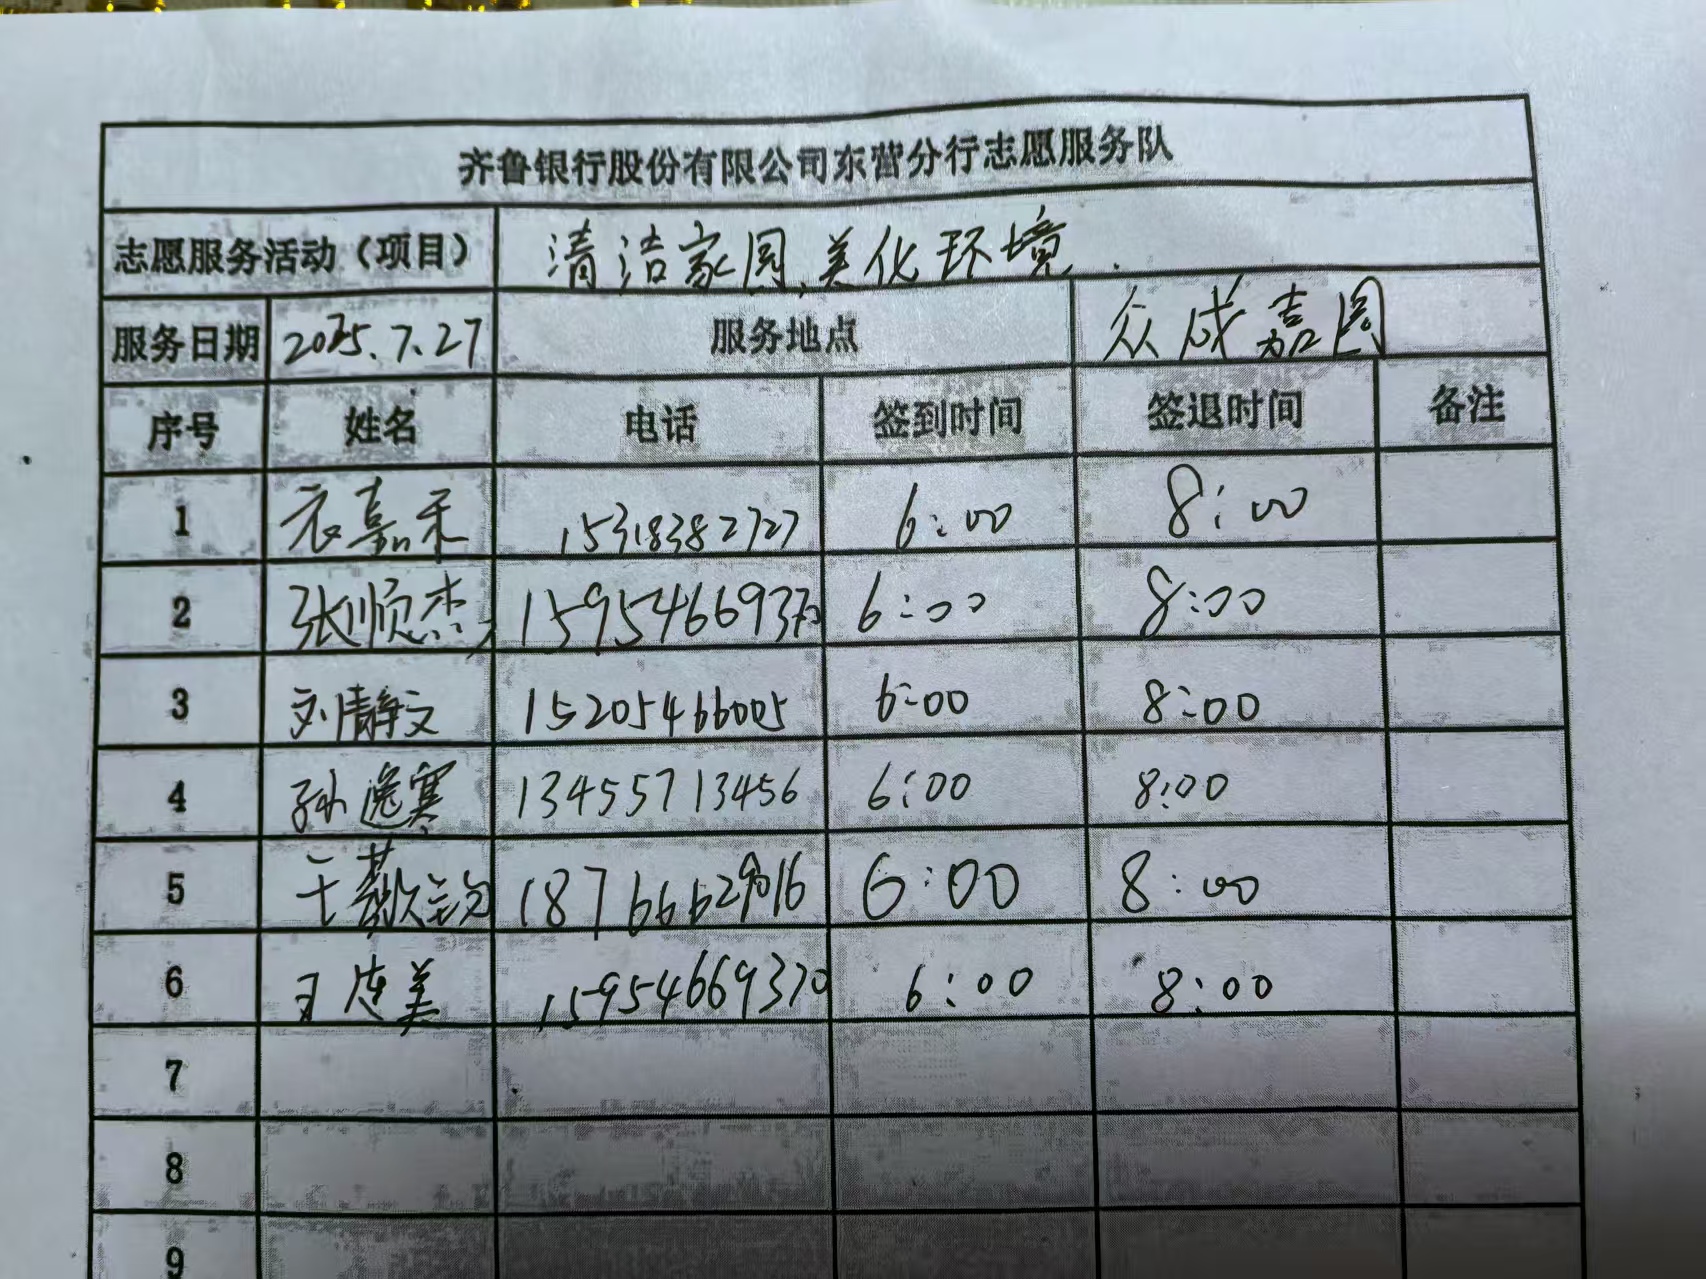 齐鲁银行股份有限公司东营分行志愿服务队
志愿服务活动（项目） 清洁家园、美化环境.
服务日期 2025.7.27 服务地点 众成嘉园
序号 姓名 电话 签到时间 签退时间 备注
1 衣嘉禾 15318382727 6:00 8:00
2 张顺杰 6:00 8:00
3 刘静文 15205466005 6:00 8:00
4 孙逸寒 13455713456 6:00 8:00
5 6:00 8:00
6 15954669370 6:00 8:00
7
8
9